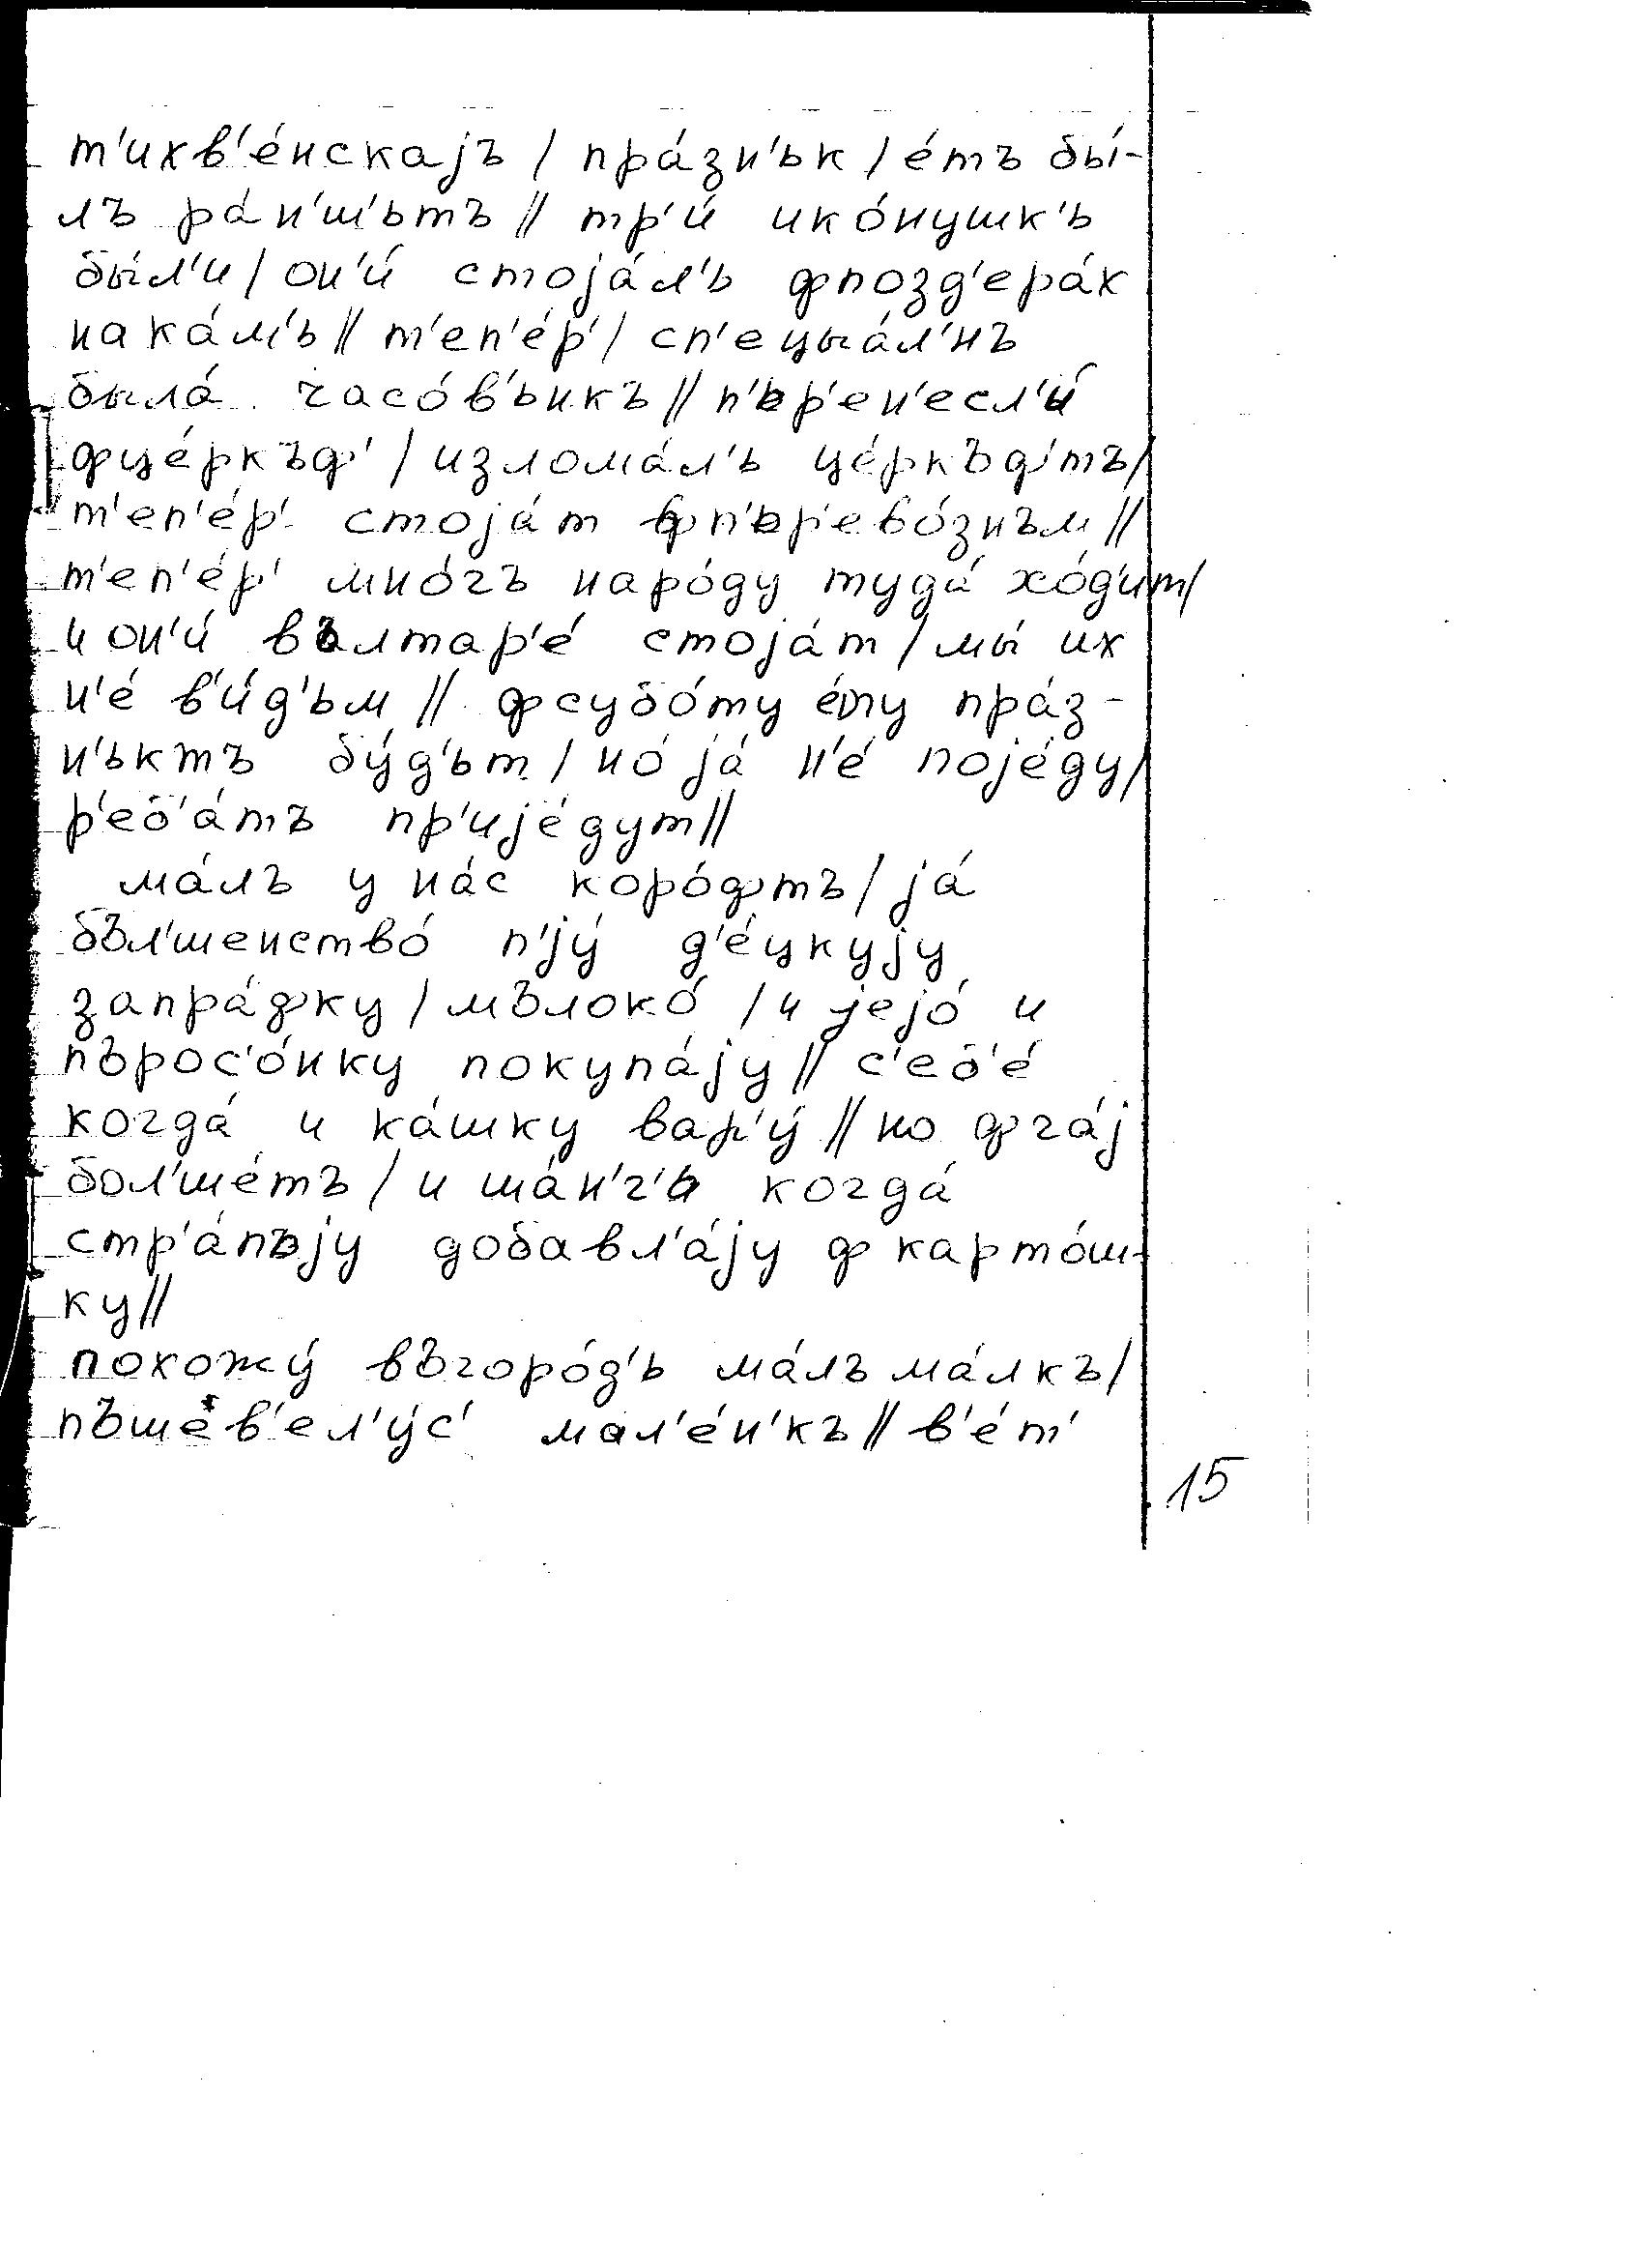 т'ихв'е́нскајъ / пра́зн'ьк / е́тъ бы́-
лъ ра́н'ш'ьтъ // тр'и́ ико́нушк'ь
бы́л'и / он'и́ стоја́л'ь фпозд'ера́х
на ка́м'ь // т'еп'е́р' / сп'ецыа́л'нъ
была́ часо́в'ьнкъ // п'ьр'ен'есл'и́
фце́ркъф' / излома́л'ь це́ркъф'тъ /
т'еп'е́р' стоја́т фп'ьр'ево́знъм //
т'еп'е́р' мно́гъ наро́ду туда́ хо́д'ит /
и он'и́ вълтар'е́ стоја́т / мы́ их
н'е́ в'и́д'ьм // фсубо́ту е́ту пра́з-
н'ьктъ бу́д'ьт / но́ ја́ н'е́ поје́ду /
р'еб'а́тъ пр'ије́дут //
ма́лъ у на́с коро́фтъ / ја́
бъл'шенство́ п'ју́ д'е́цкују
запра́фку / мълоко́ / и јејо́ и
пърос'о́нку покупа́ју // с'еб'е́
когда́ и ка́шку вар'у́ // но фча́ј
бол'ше́тъ / и ша́н'г'ь когда́
стр'а́пъју добавл'а́ју ф карто́ш-
ку //
похожу́ въгоро́д'ь ма́лъ ма́лкъ /
пъшев'ел'у́с' мал'е́н'къ // в'е́т'
15